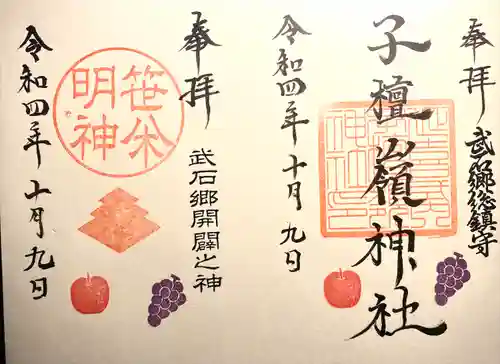 奉拝
武石郷総鎮守
子檀嶺神社
令和四年十月九日
奉拝
武石郷開闢之神
笹焼
明神
令和四年十月九日